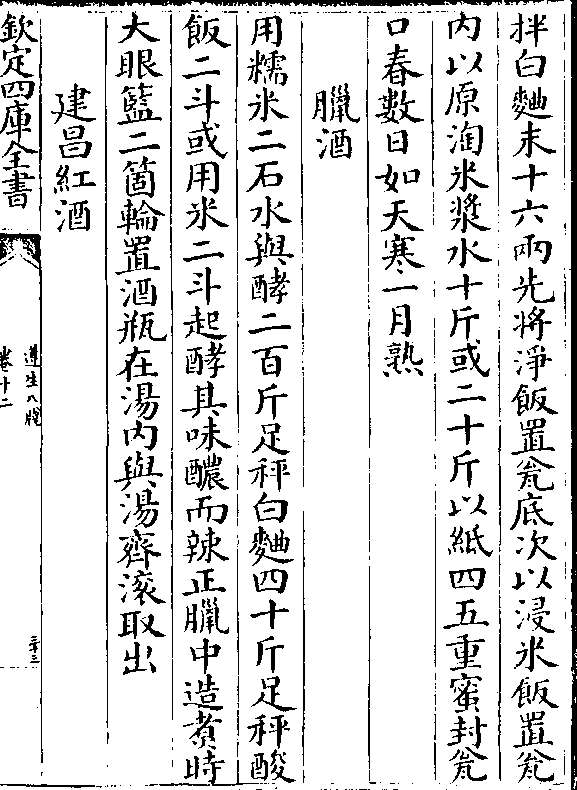 拌白麯末十六兩先將淨飯置瓮底次以浸米飯置瓮
内以原淘米漿水十斤或二十斤以紙四五重蜜封瓮
口春數日如天寒一月熟
臘酒
用糯米二石水與酵二百斤足秤白麯四十斤足秤酸
飯二斗或用米二斗起酵其味醲而辣正臘中造煮時
大眼籃二箇輪置酒瓶在湯内與湯齊滚取出
建昌紅酒
欽定四庫全書
遵生八牋
卷十二
三十三